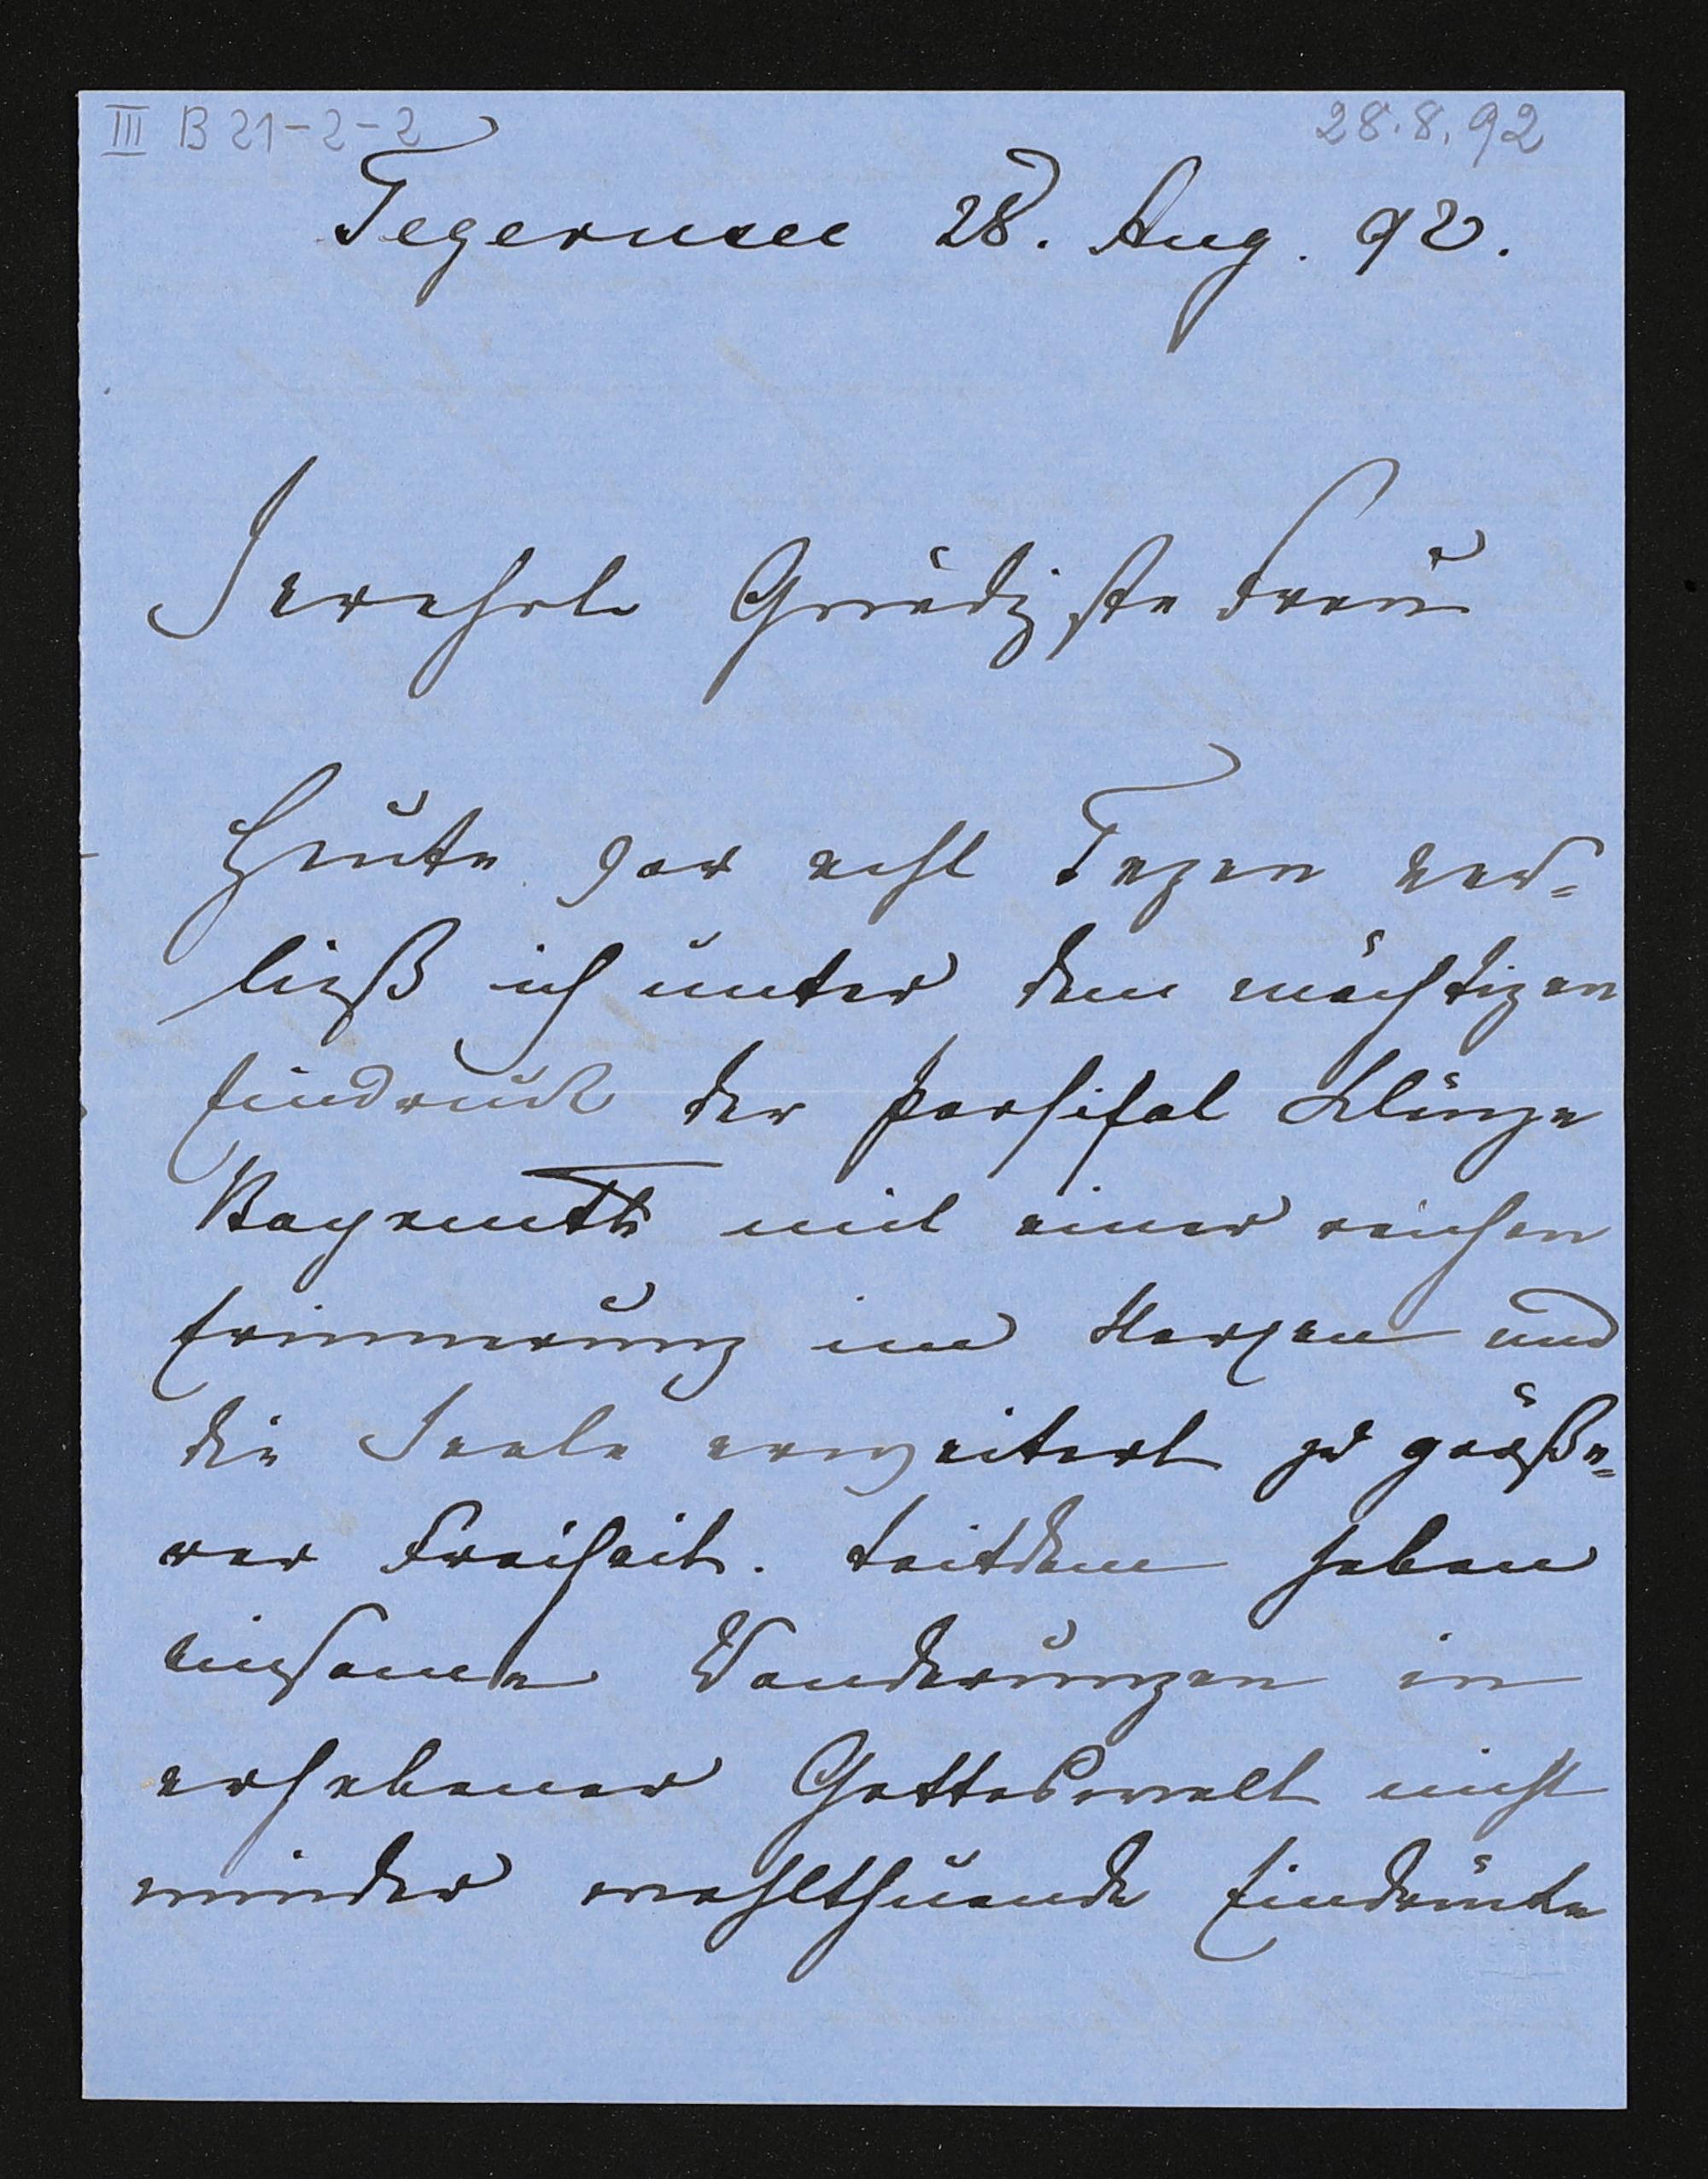 III B 21-2-2
28.8.92
Tegernsee 28. Aug. 92.
Geehrte Gnädigste Frau
Heute vor acht Tagen ver=
ließ ich unter dem mächtigen
Eindruck der Parsifal Klänge
Bayreuth mit einer reichen
Erinnerung im Herzen und
die Seele erweitert zu größe=
rer Freiheit. Seitdem haben
einsame Wanderungen in
erhabener Gotteswelt nicht
minder wohlthuende Eindrücke